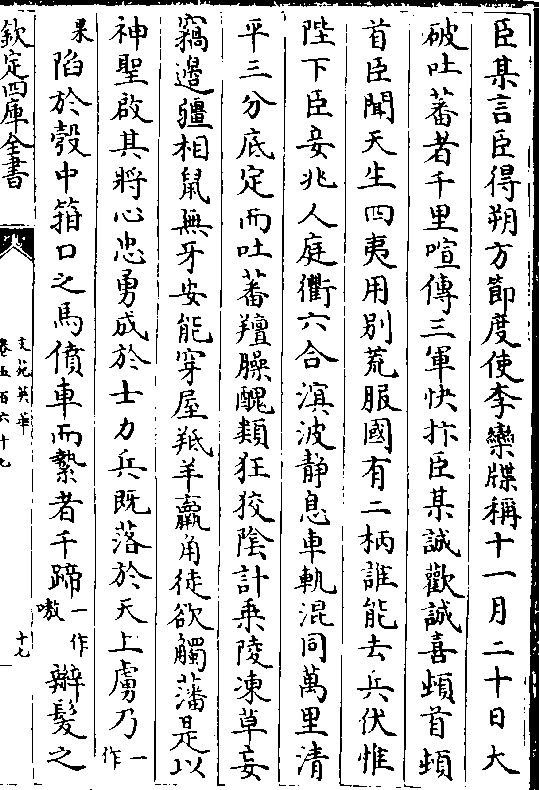 臣某言臣得朔方節度使李欒牒稱十一月二十日大
破吐蕃者千里喧傳三軍快抃臣某誠歡誠喜頓首頓
首臣聞天生四夷用別荒服國有二柄誰能去兵伏惟
陛下臣妾兆人庭衢六合溟波静息車軌混同萬里清
平三分底定而吐蕃羶臊醜類狂狡陰計乗陵凍草妄
窺邉疆相鼠無牙安能穿屋羝羊羸角徒欲觸藩是以
神聖啟其將心忠勇成於士力兵既落於天上虜乃一作
果陷於彀中箝口之馬僨車而縶者千蹄一作噭辮髪之
欽定四庫全書
文苑英華
卷五百六十九
十七